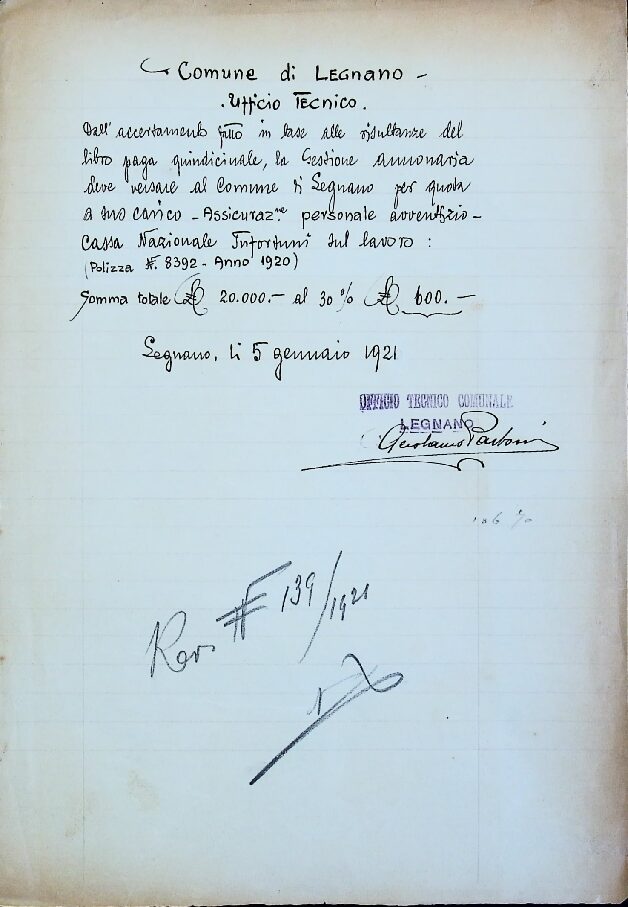 Comune di Legnano -
. Ufficio Tecnico .
Dall' accertamento fatto in base alle risultanze del
libro paga quindicinale, la Gestione annonaria
deve versare al Comune di Legnano per quota
a suo carico - Assicuraz.ne personale avventizio -
Cassa Nazionale Infortuni sul lavoro :
(Polizza N. 8392 - Anno 1920)
Somma totale £ 20.000.- al 30 % £ 600. -
Legnano, li 5 gennaio 1921
UFFICIO TECNICO COMUNALE
LEGNANO
Gerolamo
N. 139/1921